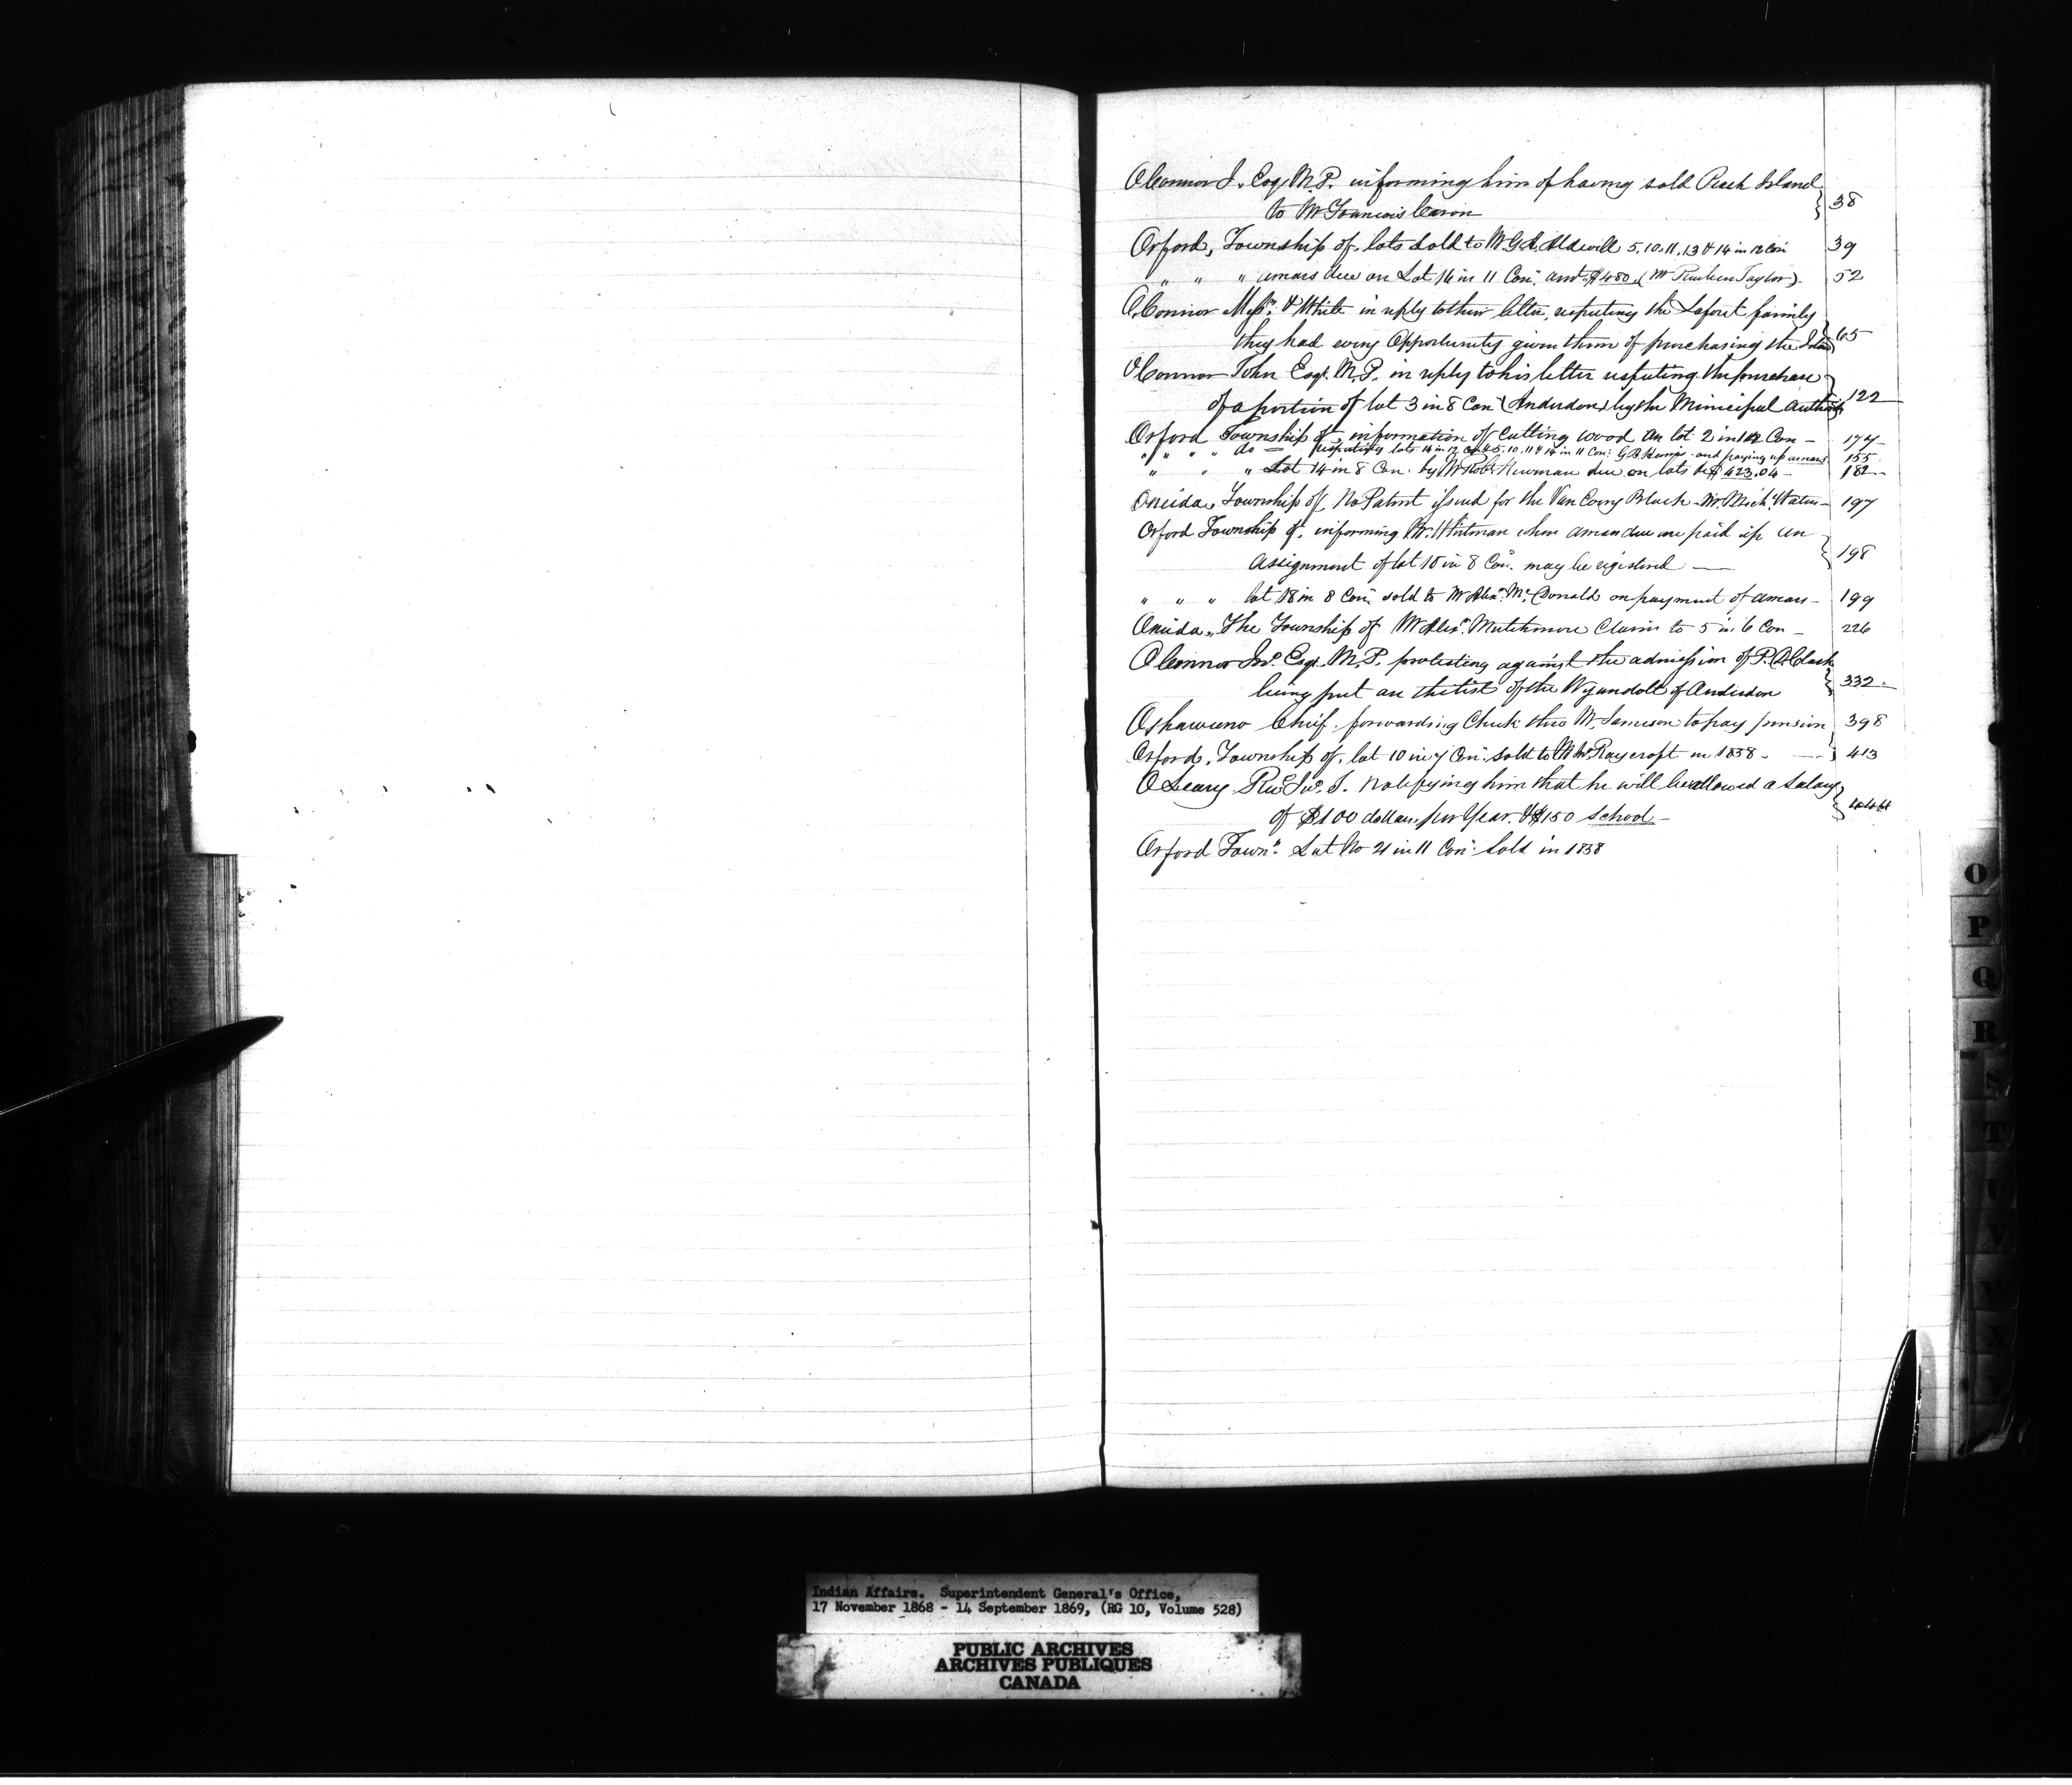 OConnor J. Esq. M.P. informing him of having sold Peach Island
to Mr Francois Caron } 38
Orford, Township of, lots sold to Mr G.A. 5, 10, 11, 13 & 14 in 12 Con 39
" " " arrears due on Lot 16 in 11 Con: amt. $480. (Mr Reuben Taylor). 52
O.Connor Messrs: & White in reply to their letter, respecting the Lafort family
they had every Opportunity given them of purchasing the Island } 65
OConnor John Esqr. M.P. in reply to his letter respecting the purchase
of a portion of lot 3 in 8 Con (Anderdon) by the Municipal } 122
Orford Township of, information of cutting wood on lot 2 in 12 Con - 174
" " " " do = respecting lots 14 in 12 5, 10, 11 & 14 in 11 Con: G.A. and paying up arrears 155
" " " Lot 14 in 8 Con. by Mr Robt Newman due on lots $423.04 - 182
Oneida, Township of No Patent issued for the Van Every Block - Mr. Mich. - 197
Orford Township of, informing Mr. when arrears due are paid up an
assignment of lot 15 in 8 Con: may be registered } 198
" " " lot 18 in 8 Con: sold to Mr Alexr. Mc.Donald on payment of arrears - 199
Oneida, The Township of Mr Alexr. Mutchmore Claim to 5 in 6 Con - 226
OConnor Jno. Esqr. M.P. protesting against the admission of P.C. Clark
being put on the list of the Wyandott of Anderdon } 332.
Oshawano Chief. forwarding Check thro Mr. Jameson to pay pension 398
Orford, Township of, lot 10 in 7 Con: sold to Mr Wm. Raycroft in 1838 - } 413
OLeary Revd Jno. J. Notifying him that he will be allowed a Salary
of $100 dollars per Year. & $150 school - } 444
Orford Town: Lot No 21 in 11 Con: Sold in 1838
O
P
Q
R
S
T
U
V
W
X
Indian Affairs. Superintendent General's Office,
17 November 1868 - 14 September 1869, (RG 10, Volume 528)
PUBLIC ARCHIVES
ARCHIVES PUBLIQUES
CANADA